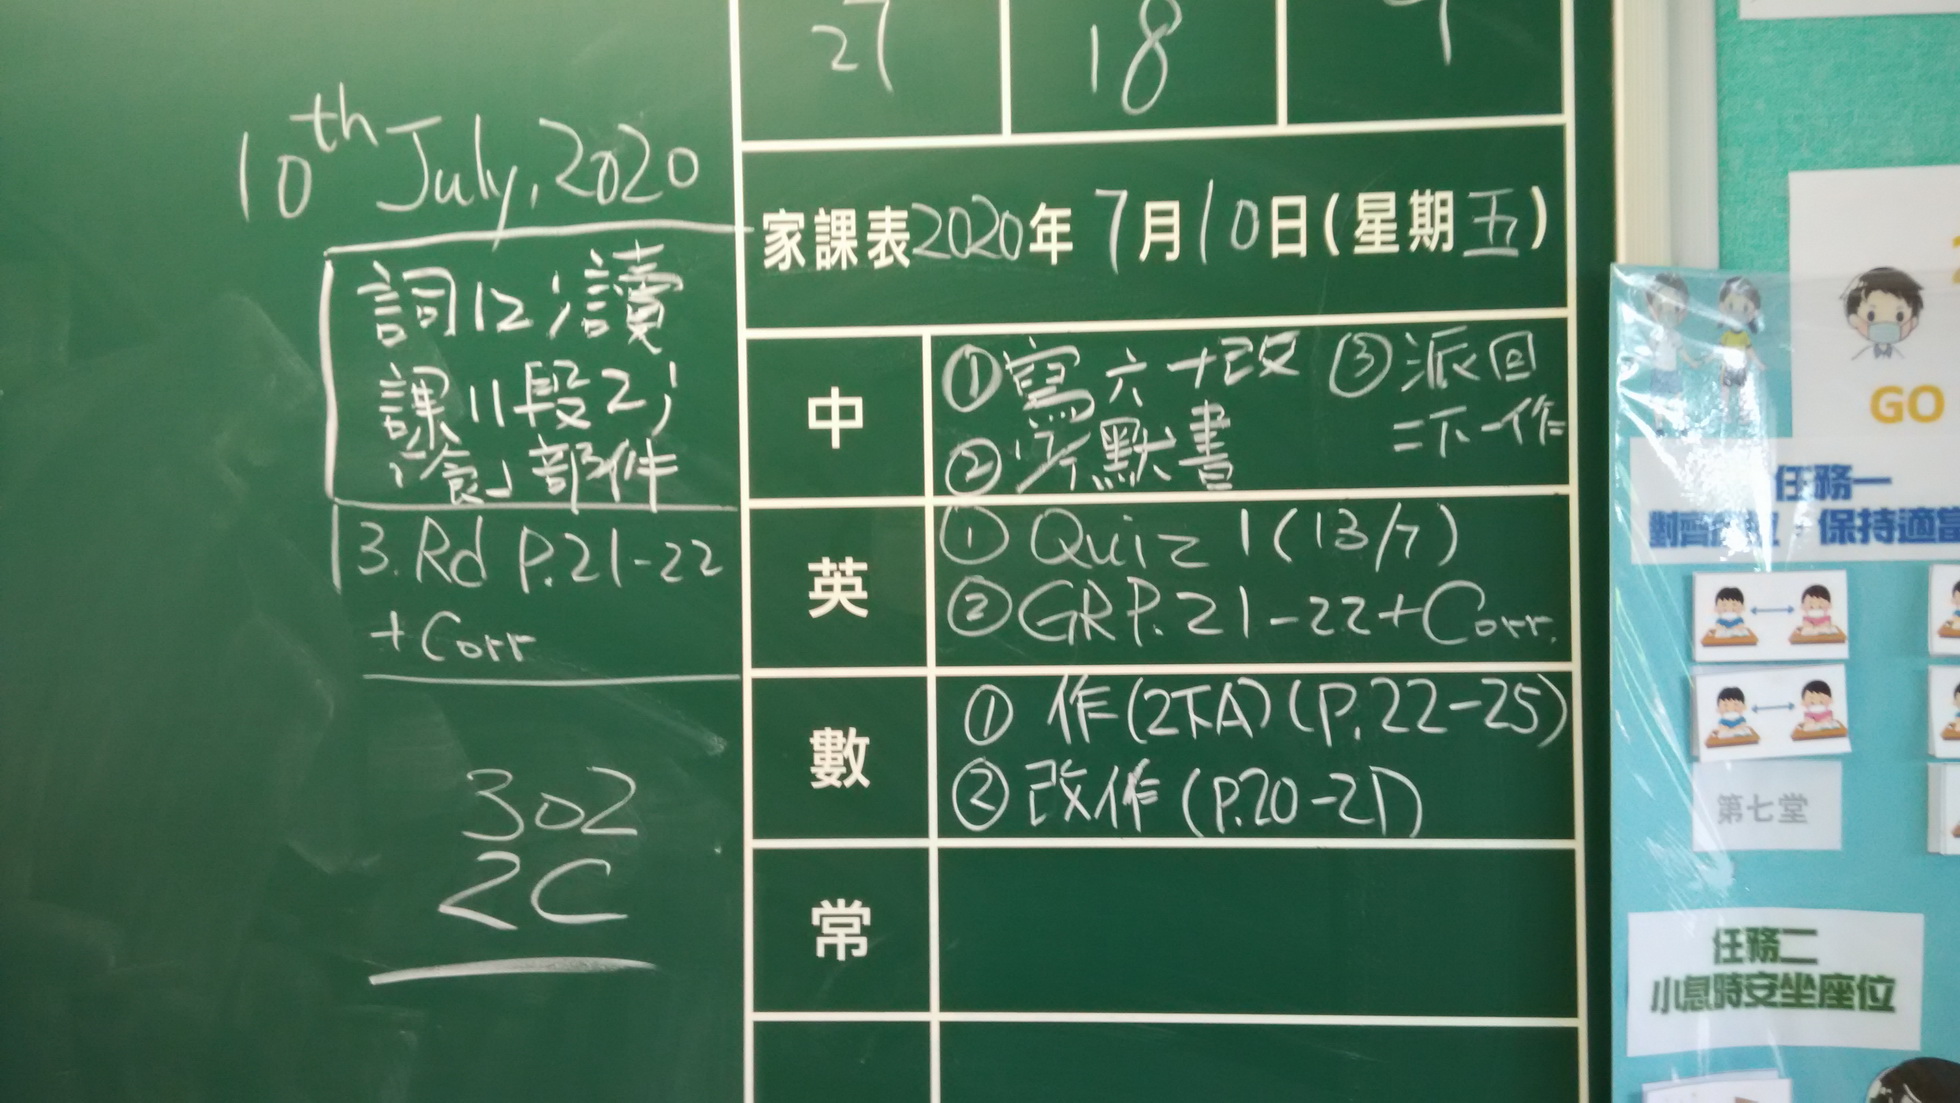 27 18
10th July, 2020
詞12；讀
課11段2；
「飠」部件
13. Rd P.21-22
+Corr
302
2C
家課表2020年7月10日(星期五)
中
①寫六+改 ③派回
②默書 二下一作
英
① Quiz 1 (13/7)
② GRP. 21-22+Corr.
數
① 作(2下A)(P.22-25)
② 改作(P.20-21)
常
GO
任務一
保持適當
第七堂
任務二
小息時安坐座位